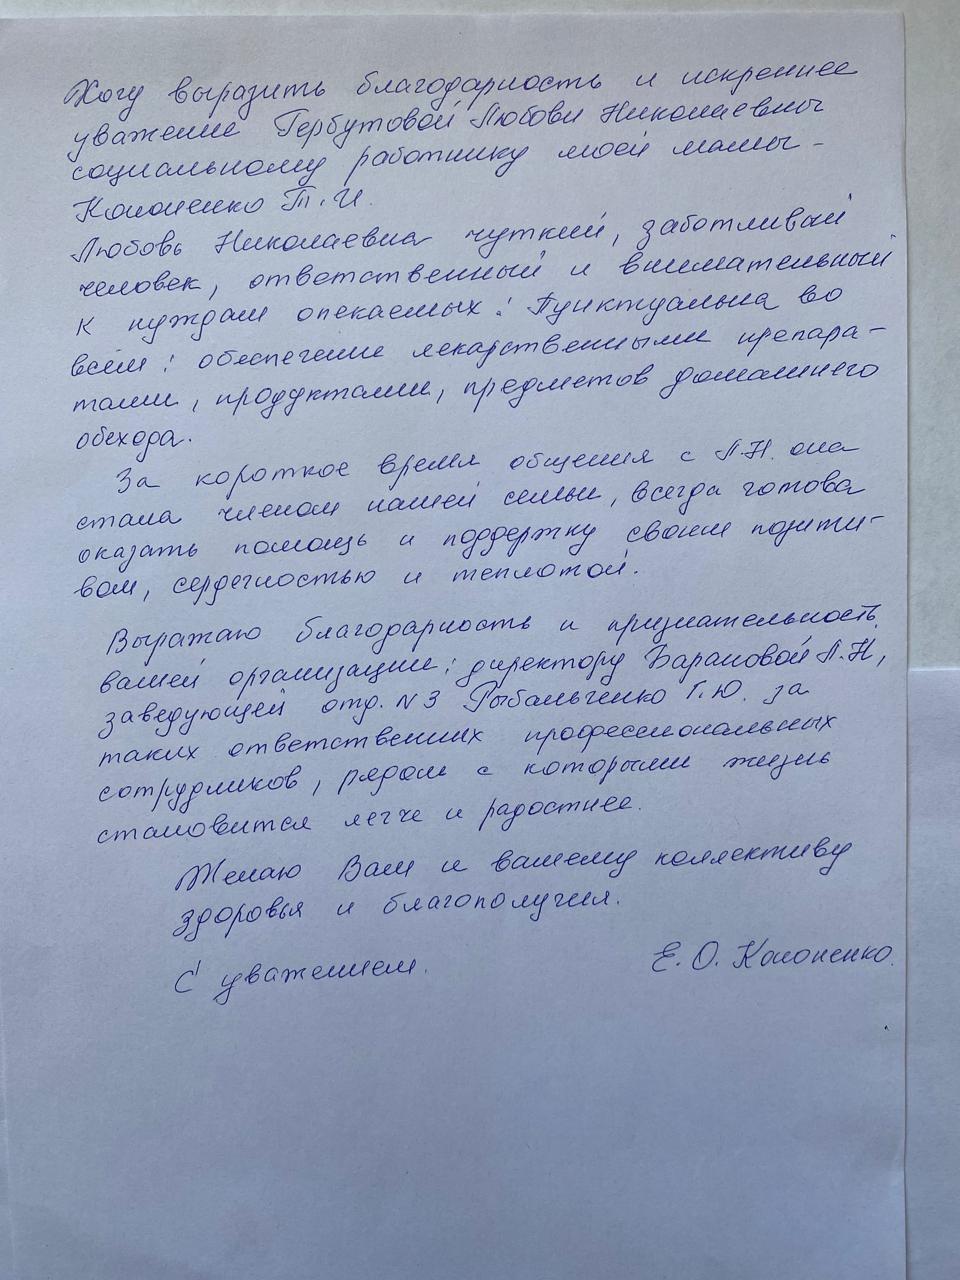 Хочу выразить благодарность и искреннее
уважение Гербутовой Любови Николаевны
социальному работнику моей мамы -
Кононенко Т.И.
Любовь Николаевна чуткий, заботливый
человек, ответственный и внимательный
к нуждам опекаемых! Пунктуальна во
всём: обеспечение лекарственными препара-
тами, продуктами, предметов домашнего
обихода.
За короткое время общения с Л.Н. она
стала членом нашей семьи, всегда готова
оказать помощь и поддержку своим позити-
вом, сердечностью и теплотой.
Выражаю благодарность и признательность
вашей организации: директору Барановой Л.Н,
заведующей отд. N3 Рыбальченко Г.Ю. за
таких ответственних профессиональных
сотрудников, рядом с которыми жизнь
становится легче и радостнее.
Желаю Вам и вашему коллективу
здоровья и благополучия.
С уважением. Е.О. Кононенко.